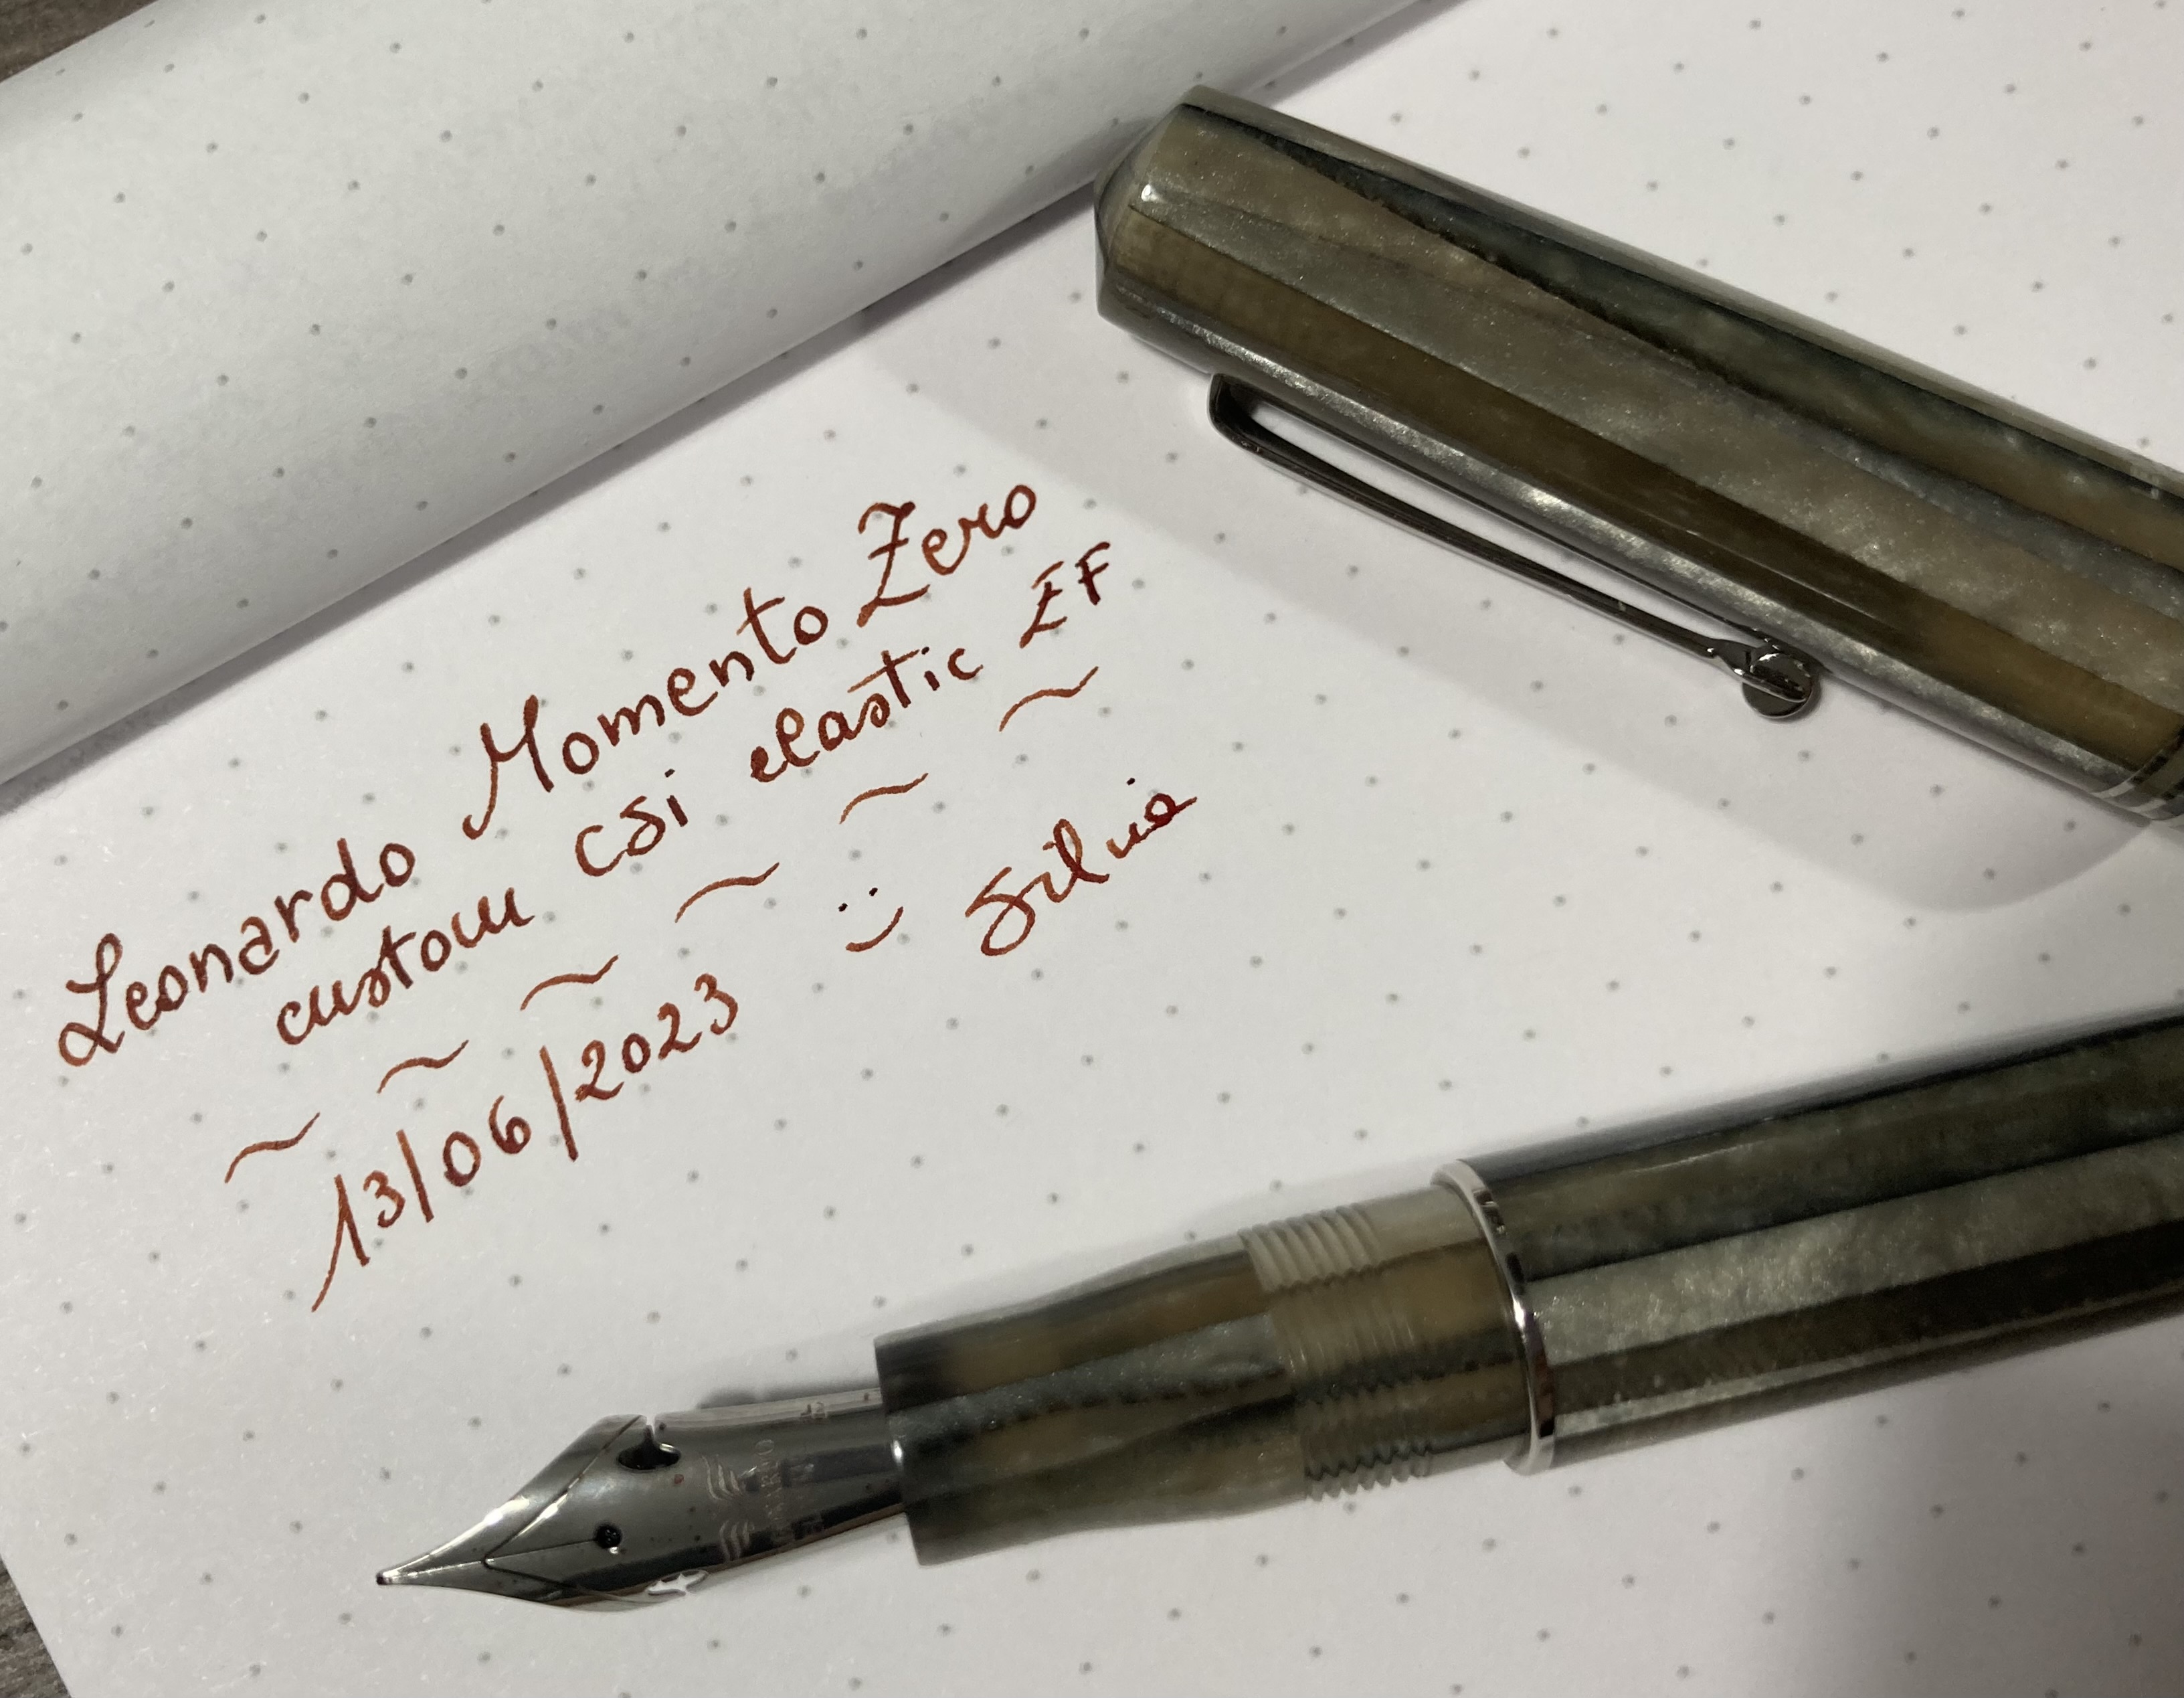 Leonardo Momento Zero
custom csi elastic EF
~ ~ ~ ~ ~ ~
13/06/2023 :) Silvia
LEONARDO